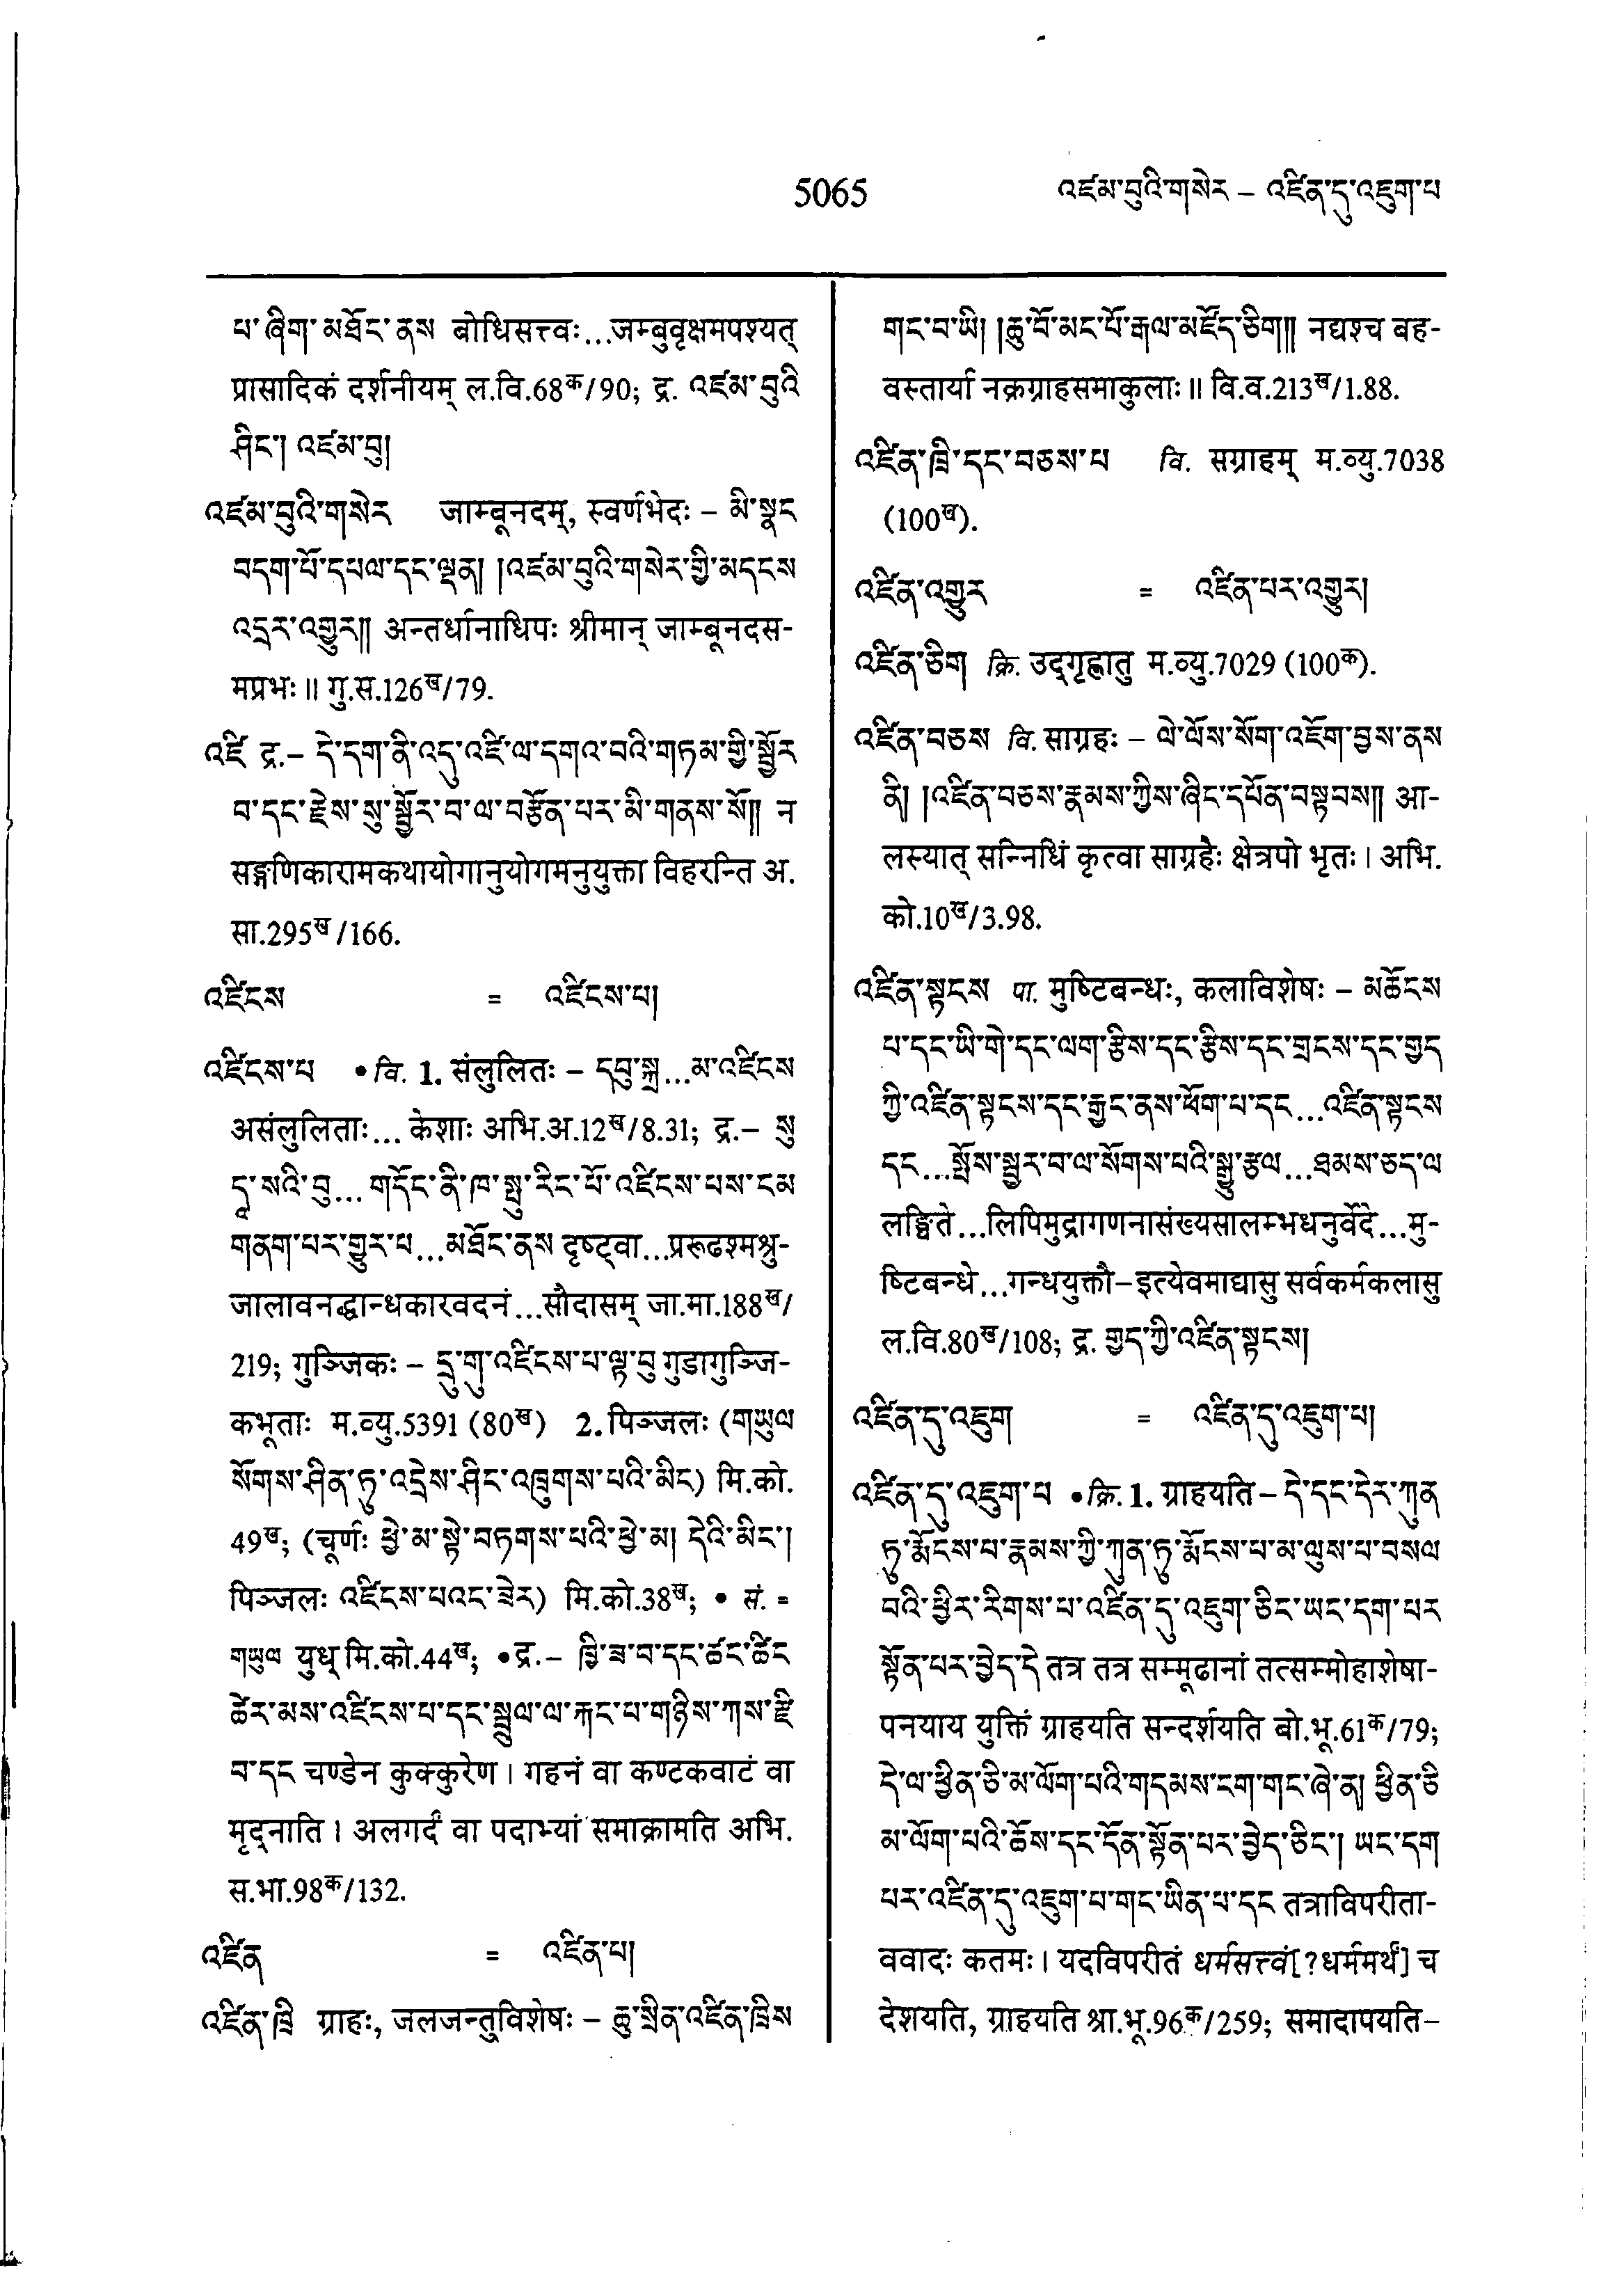 5065
འཛམ་བུའི་གསེར – འཛིན་དུ་འཇུག་པ
པ་ཞིག་མཐོང་ནས बोधिसत्त्वः...जम्बुवृक्षमपश्यत्
प्रासादिकं दर्शनीयम् ल.वि.68क/90; द्र. འཛམ་བུའི
ཤིང་། འཛམ་བུ།
འཛམ་བུའི་གསེར जाम्बूनदम्, स्वर्णभेदः – མི་སྣང
བདག་པོ་དཔལ་དང་ལྡན། །འཛམ་བུའི་གསེར་གྱི་མདངས
འདྲར་འགྱུར།། अन्तर्धानाधिपः श्रीमान् जाम्बूनदस-
मप्रभः॥ गु.स.126ख/79.
འཛི द्र.– དེ་དག་ནི་འདུ་འཛི་ལ་དགའ་བའི་གཏམ་གྱི་སྦྱོར
བ་དང་རྗེས་སུ་སྦྱོར་བ་ལ་བརྩོན་པར་མི་གནས་སོ།། न
सङ्गणिकारामकथायोगानुयोगमनुयुक्ता विहरन्ति अ.
सा.295ख/166.
འཛིངས = འཛིངས་པ།
འཛིངས་པ •वि. 1. संलुलितः – དབུ་སྐྲ...མ་འཛིངས
असंलुलिताः... केशाः अभि.अ.12ख/8.31; द्र.– སུ
དཱ་སའི་བུ... གདོང་ནི་ཁ་སྤུ་རིང་པོ་འཛིངས་པས་ངམ
གནག་པར་གྱུར་པ...མཐོང་ནས दृष्ट्वा...प्ररूढश्मश्रु-
जालावनद्धान्धकारवदनं...सौदासम् जा.मा.188ख/
219; गुञ्जिकः – དྲུ་གུ་འཛིངས་པ་ལྟ་བུ गुडागुञ्जि-
कभूताः म.व्यु.5391 (80ख) 2. पिञ्जलः (གཡུལ
སོགས་ཤིན་ཏུ་འདྲེས་ཤིང་འཁྲུགས་པའི་མིང) मि.को.
49ख; (चूर्णः ཕྱེ་མ་སྟེ་བཏགས་པའི་ཕྱེ་མ། དེའི་མིང་།
पिञ्जलः འཛིངས་པའང་ཟེར) मि.को.38ख; • सं. =
གཡུལ युध् मि.को.44ख; •द्र.– ཁྱི་ཟ་བ་དང་ཚང་ཚིང
ཚེར་མས་འཛིངས་པ་དང་སྦྲུལ་ལ་རྐང་པ་གཉིས་ཀས་རྫི
བ་དང चण्डेन कुक्कुरेण। गहनं वा कण्टकवाटं वा
मृद्नाति। अलगर्दं वा पदाभ्यां समाक्रामति अभि.
स.भा.98क/132.
འཛིན = འཛིན་པ།
འཛིན་ཁྲི ग्राहः, जलजन्तुविशेषः – ཆུ་སྲིན་འཛིན་ཁྲིས
གང་བ་ཡི། །ཆུ་བོ་མང་པོ་རྒལ་མཛོད་ཅིག།། नद्यश्च बह-
वस्तार्या नक्रग्राहसमाकुलाः॥ वि.व.213ख/1.88.
འཛིན་ཁྲི་དང་བཅས་པ वि. सग्राहम् म.व्यु.7038
(100ख).
འཛིན་འགྱུར = འཛིན་པར་འགྱུར།
འཛིན་ཅིག क्रि. उद्गृह्णातु म.व्यु.7029 (100क).
འཛིན་བཅས वि. साग्रहः – ལེ་ལོས་སོག་འཇོག་བྱས་ནས
ནི། །འཛིན་བཅས་རྣམས་ཀྱིས་ཞིང་དཔོན་བསྟབས།། आ-
लस्यात् सन्निधिं कृत्वा साग्रहैः क्षेत्रपो भृतः। अभि.
को.10ख/3.98.
འཛིན་སྟངས पा. मुष्टिबन्धः, कलाविशेषः – མཆོངས
པ་དང་ཡི་གེ་དང་ལག་རྩིས་དང་རྩིས་དང་གྲངས་དང་གྱད
ཀྱི་འཛིན་སྟངས་དང་རྒྱང་ནས་ཕོག་པ་དང...འཛིན་སྟངས
དང...སྤོས་སྦྱར་བ་ལ་སོགས་པའི་སྒྱུ་རྩལ...ཐམས་ཅད་ལ
लङ्घिते...लिपिमुद्रागणनासंख्यसालम्भधनुर्वेदे...मु-
ष्टिबन्धे...गन्धयुक्तौ–इत्येवमाद्यासु सर्वकर्मकलासु
ल.वि.80ख/108; द्र. གྱད་ཀྱི་འཛིན་སྟངས།
འཛིན་དུ་འཇུག = འཛིན་དུ་འཇུག་པ།
འཛིན་དུ་འཇུག་པ •क्रि. 1. ग्राहयति – དེ་དང་དེར་ཀུན
ཏུ་རྨོངས་པ་རྣམས་ཀྱི་ཀུན་ཏུ་རྨོངས་པ་མ་ལུས་པ་བསལ
བའི་ཕྱིར་རིགས་པ་འཛིན་དུ་འཇུག་ཅིང་ཡང་དག་པར
སྟོན་པར་བྱེད་དེ तत्र तत्र सम्मूढानां तत्सम्मोहाशेषा-
पनयाय युक्तिं ग्राहयति सन्दर्शयति बो.भू.61क/79;
དེ་ལ་ཕྱིན་ཅི་མ་ལོག་པའི་གདམས་ངག་གང་ཞེ་ན། ཕྱིན་ཅི
མ་ལོག་པའི་ཆོས་དང་དོན་སྟོན་པར་བྱེད་ཅིང་། ཡང་དག
པར་འཛིན་དུ་འཇུག་པ་གང་ཡིན་པ་དང तत्राविपरीता-
ववादः कतमः। यदविपरीतं धर्मसत्त्वं[?धर्ममर्थं] च
देशयति, ग्राहयति श्रा.भू.96क/259; समादापयति–